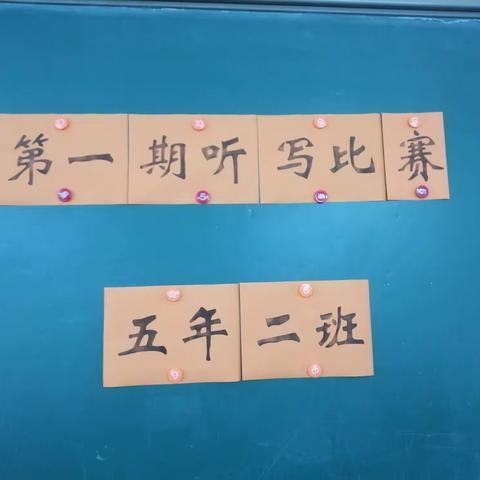 第一期听写比赛
五年二班